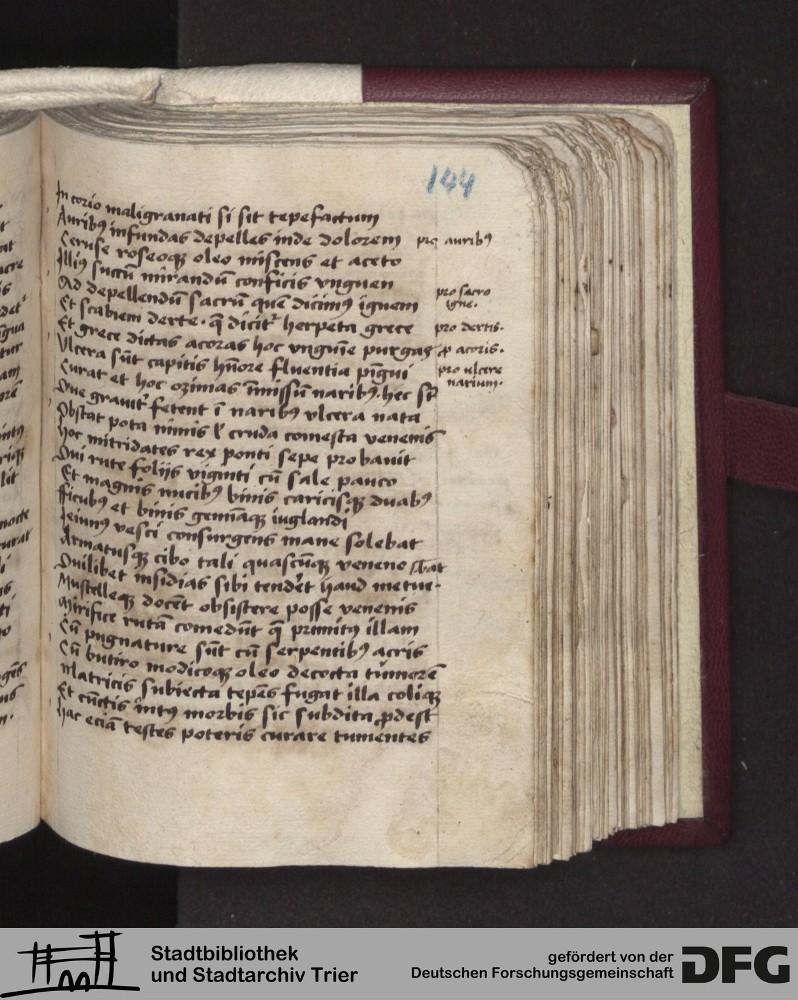 144
In corio maligranati si sit tepefactum
Auribꝰ infundas depelles inde dolorem
pro auribꝰ
Ceruse roseoqꝫ oleo miscens et aceto
Illiꝰ succū mirandū conficis vnguen
Ad depellendū sacrū que dicimꝰ ignem
pro sacro
igne.
Et scabiem derte. q̄ dicit̄ herpeta grece
pro dertis.
Et grece dictas acoras hoc vnguīe purgas
ꝓ acoris.
Vlcera sūt capitis hūore fluentia pīgui
pro vlcere
narium.
Curat et hoc ozimas īmissū naribꝰ. hec st̄
Que grauit̄ fetent ī naribꝰ vlcera nata
Obstat pota nimis l̄ cruda comesta venenis
Hoc mitridates rex ponti sepe probauit
Qui rute folijs viginti cū sale pauco
Et magnis nucibꝰ binis caricisqꝫ duabꝰ
Ficubꝰ et binis iuglandi
Ieiunꝰ vesci consurgens mane solebat
Armatusqꝫ cibo tali quascūqꝫ veneno
Quilibet insidias sibi tendēt haud metue-
bat
Mustelleqꝫ docēt obsistere posse venenis
Mirifice rutā comedūt q̄ primitꝰ illam
Cū pugnature sūt cū serpentibꝰ acris
Cū butiro modicoqꝫ oleo decocta tūmorē
Matricis subiecta tepēs fugat illa coliqꝫ
Et cūctis īntꝰ morbis sic subdita ꝓdest
Hac eciā testes poteris curare tumentes
Stadtbibliothek
und Stadtarchiv Trier
gefördert von der
Deutschen Forschungsgemeinschaft
DFG